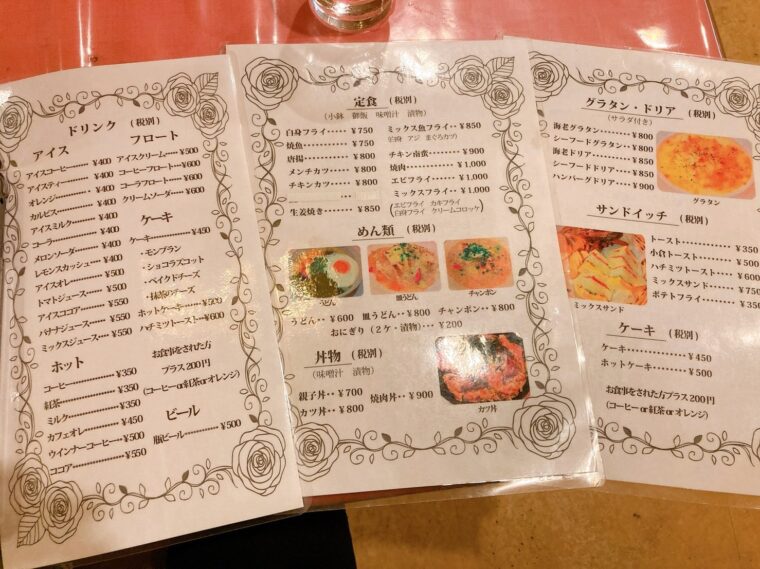 ドリンク (税別)
アイス
アイスコーヒー………¥400
アイスティー…………¥400
オレンジ………………¥400
カルピス………………¥400
アイスミルク…………¥400
コーラ…………………¥400
メロンソーダ…………¥400
レモンスカッシュ……¥400
アイスオレ……………¥500
トマトジュース………¥500
アイスココア…………¥550
バナナジュース………¥550
ミックスジュース……¥550
ホット
コーヒー………………¥350
紅茶……………………¥350
ミルク…………………¥350
カフェオレ……………¥450
ウインナーコーヒー…¥500
ココア…………………¥550
フロート
アイスクリーム………¥500
コーヒーフロート……¥600
コーラフロート………¥600
クリームソーダー……¥600
ケーキ
ケーキ…………………¥450
・モンブラン
・ショコラスコット
・ベイクドチーズ
・抹茶のチーズ
ホットケーキ…………¥500
ハチミツトースト……¥600
お食事をされた方
プラス200円
(コーヒーor紅茶orオレンジ)
ビール
瓶ビール………………¥500
定食 (税別)
(小鉢 御飯 味噌汁 漬物)
白身フライ‥‥¥750
焼魚‥‥¥750
唐揚‥‥¥800
メンチカツ‥‥¥800
チキンカツ‥‥¥800
生姜焼き‥‥¥850
ミックス魚フライ‥¥850
(白身 アジ まぐろカツ)
チキン南蛮‥‥¥900
焼肉‥‥¥1,000
エビフライ‥‥¥1,000
ミックスフライ‥‥¥1,000
(エビフライ カキフライ
白身フライ クリームコロッケ)
めん類 (税別)
うどん
皿うどん
チャンポン
うどん‥¥600 皿うどん‥¥800 チャンポン‥¥800
おにぎり(2ケ・漬物)‥‥¥200
丼物 (税別)
(味噌汁 漬物)
親子丼‥¥700 焼肉丼‥¥900
カツ丼‥¥800
カツ丼
グラタン・ドリア (税別)
(サラダ付き)
海老グラタン‥‥¥800
シーフードグラタン‥¥800
海老ドリア‥‥¥850
シーフードドリア‥‥¥850
ハンバーグドリア‥‥¥900
グラタン
サンドイッチ (税別)
トースト………………¥350
小倉トースト…………¥500
ハチミツトースト……¥600
ミックスサンド………¥750
ポテトフライ…………¥350
ミックスサンド
ケーキ (税別)
ケーキ…………………¥450
ホットケーキ…………¥500
お食事をされた方プラス200円
(コーヒー or 紅茶 or オレンジ)